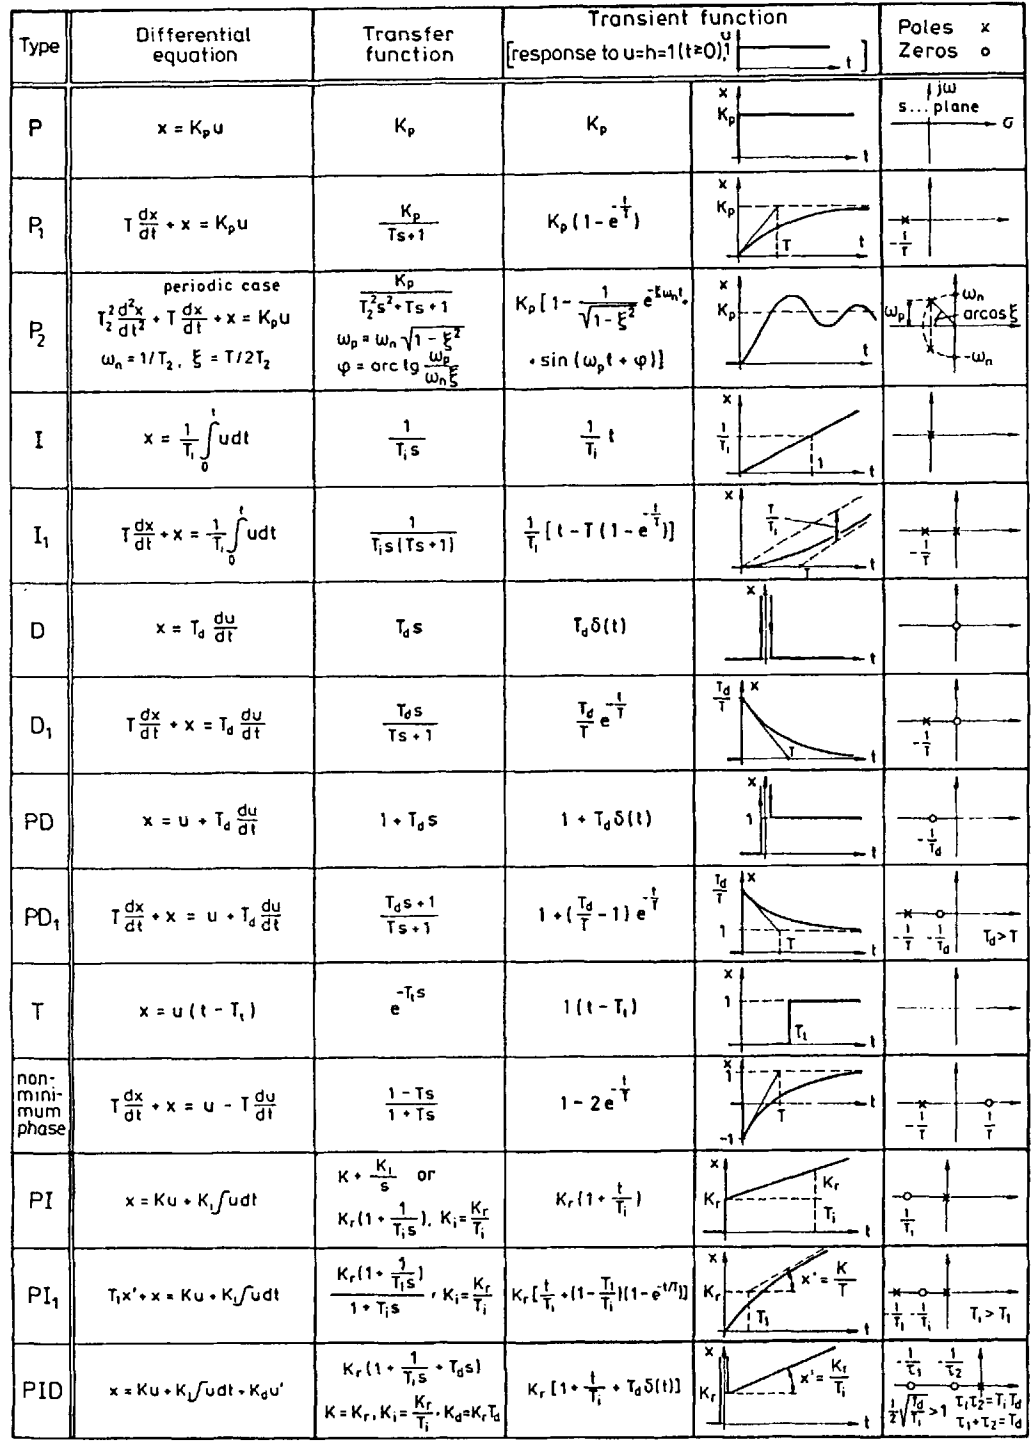 Type
Differential equation
Transfer function
Transient function
[response to u=h=1(t≥0), u 1 t ]
Poles ×
Zeros o
P
x = Kₚu
Kₚ
Kₚ
x Kₚ t
jω
s... plane
σ
P₁
T dx/dt + x = Kₚu
Kₚ/(Ts+1)
Kₚ(1-e^(-t/T))
x Kₚ T t
-1/T
P₂
periodic case
T₂² d²x/dt² + T dx/dt + x = Kₚu
ωₙ = 1/T₂, ξ = T/2T₂
Kₚ/(T₂²s²+Ts+1)
ωₚ = ωₙ √(1-ξ²)
φ = arc tg ωₚ/(ωₙξ)
Kₚ[1 - 1/√(1-ξ²) e^(-ξωₙt) ·
· sin(ωₚt + φ)]
x Kₚ t
ωₙ
ωₚ arcos ξ
-ωₙ
I
x = 1/Tᵢ ∫₀ᵗ u dt
1/(Tᵢs)
1/Tᵢ t
x 1/Tᵢ 1 t
I₁
T dx/dt + x = 1/Tᵢ ∫₀ᵗ u dt
1/(Tᵢs(Ts+1))
1/Tᵢ [t - T(1-e^(-t/T))]
x T/Tᵢ T t
-1/T
D
x = T_d du/dt
T_d s
T_d δ(t)
x t
D₁
T dx/dt + x = T_d du/dt
T_d s/(Ts+1)
T_d/T e^(-t/T)
T_d/T x T t
-1/T
PD
x = u + T_d du/dt
1 + T_d s
1 + T_d δ(t)
x 1 t
-1/T_d
PD₁
T dx/dt + x = u + T_d du/dt
(T_d s+1)/(Ts+1)
1 + (T_d/T - 1) e^(-t/T)
T_d/T x 1 T t
-1/T -1/T_d T_d > T
T
x = u(t - Tₜ)
e^(-Tₜs)
1(t - Tₜ)
x 1 Tₜ t
non-
mini-
mum
phase
T dx/dt + x = u - T du/dt
(1-Ts)/(1+Ts)
1 - 2e^(-t/T)
x 1 T -1 t
-1/T 1/T
PI
x = Ku + Kᵢ∫u dt
K + Kᵢ/s or
Kᵣ(1 + 1/(Tᵢs)), Kᵢ = Kᵣ/Tᵢ
Kᵣ(1 + t/Tᵢ)
x Kᵣ Kᵣ Tᵢ t
1/Tᵢ
PI₁
T₁x' + x = Ku + Kᵢ∫u dt
Kᵣ(1 + 1/(Tᵢs))/(1 + Tᵢs), Kᵢ = Kᵣ/Tᵢ
Kᵣ[t/Tᵢ + (1 - T₁/Tᵢ)(1-e^(-t/T₁))]
x Kᵣ x' = K/T T₁ t
-1/T₁ -1/Tᵢ Tᵢ > T₁
PID
x = Ku + Kᵢ∫u dt + K_d u'
Kᵣ(1 + 1/(Tᵢs) + T_d s)
K = Kᵣ, Kᵢ = Kᵣ/Tᵢ, K_d = KᵣT_d
Kᵣ[1 + t/Tᵢ + T_d δ(t)]
x Kᵣ x' = Kᵣ/Tᵢ t
-1/τ₁ -1/τ₂
1/2 √(T_d/Tᵢ) > 1 τ₁τ₂ = TᵢT_d
τ₁+τ₂ = T_d